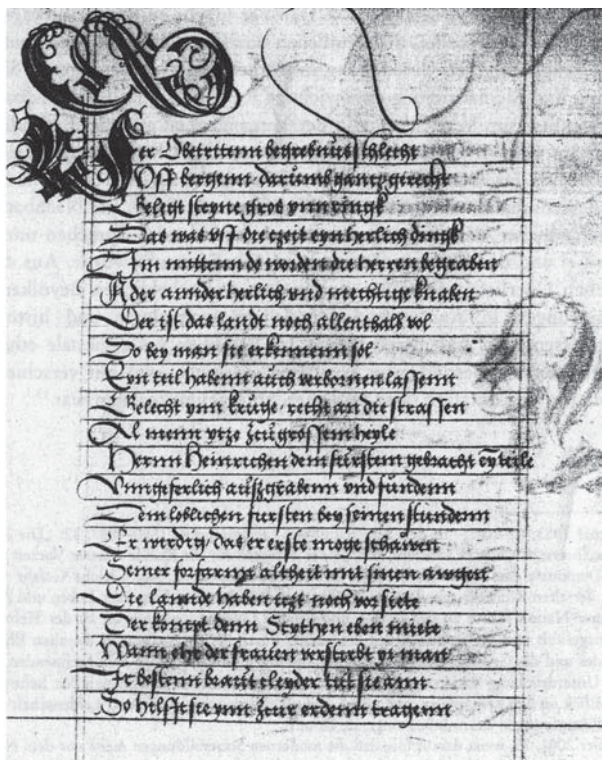 Der Obetrittenn begrebnus schlecht
Vff bergenn darumb gantz gerecht
Gelegt steyne gros ynn ringk
Das was vff die tzeit eyn herlich dingk
Im mittenn do worden die herren begraben
Ader annder herlich vnd mechtige knaben
Der ist das landt noch allenthalb vol
So bey man sie erkennenn sol
Eyn teil habenn auch verbornen lassenn
Gelecht ynn kruge recht an die strassen
Al menn ytze zeu grossem heyle
Hernn Heinrichen dem furstem gebracht ey teile
Vnngeferlich auszgrabenn vnd fundenn
Dem loblichen fursten bey seinen stundenn
Er werdig das er erste moge schawen
Seiner forfarnn altheit mit sinen awgen
Die lannde haben itzt noch vor siete
Der kompt denn Scythen eben miete
Wann ehe der frauen versterbt yr man
Ir bestenn braut cleyder tut sie ann
So hilfft sie ynn zeur erdenn tragenn